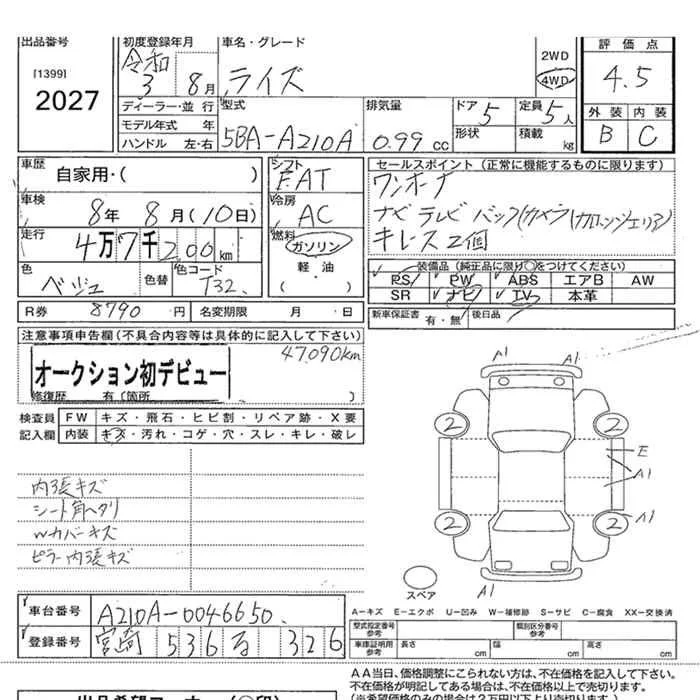 出品番号 初度登録年月 車名・グレード 評価点
[1399] 令和 2WD
2027 3 8月 ライズ 4WD 4.5
ディーラー・並 行 型式 排気量 ドア 定員 外装 内装
モデル年式 年 5 5人
ハンドル 左・右 5BA-A210A 0.99 CC 形状 積載 kg B C
車歴 自家用・( ) シフト FAT セールスポイント(正常に機能するものに限ります)
車検 8年 8月(10日) 冷房 AC ワンオーナ
走行 4万7千200km 燃料 ガソリン ナビ テレビ バックカメラ
軽油 キーレス2個
色 ベージュ 色替 色コード T32 ( )
装備品(純正品に限り○をつけてください)
PS PW ABS エアB AW
SR ナビ TV 本革
R券 8790円 名変期限 月 日 新車保証書 有・無 後日品
注意事項申告欄(不具合内容等は具体的に記入して下さい)
47,090km
オークション初デビュー
修復歴 有(箇所 )
検査員 FW キズ・飛石・ヒビ割・リペア跡・X要
記入欄 内装 キズ・汚れ・コゲ・穴・スレ・キレ・破レ
A1 A1
2 2
E
A1
2 2 A1
A1
スペア
内張キズ
シート角ヘタリ
Wカバーキズ
ピラー内張キズ
A−キズ E−エクボ U−凹み W−補修跡 S−サビ C−腐食 XX−交換済
車台番号 A210A-0046650
型式指定番号 参考 類別区分番号 参考
登録番号 宮崎 536 る 326
車庫証明用 参考 長さ cm 幅 cm 高さ cm
AA当日、価格調整にこられない方は、不在価格を記入して下さい。
不在価格が明記してある場合は、不在価格以上で売ります。